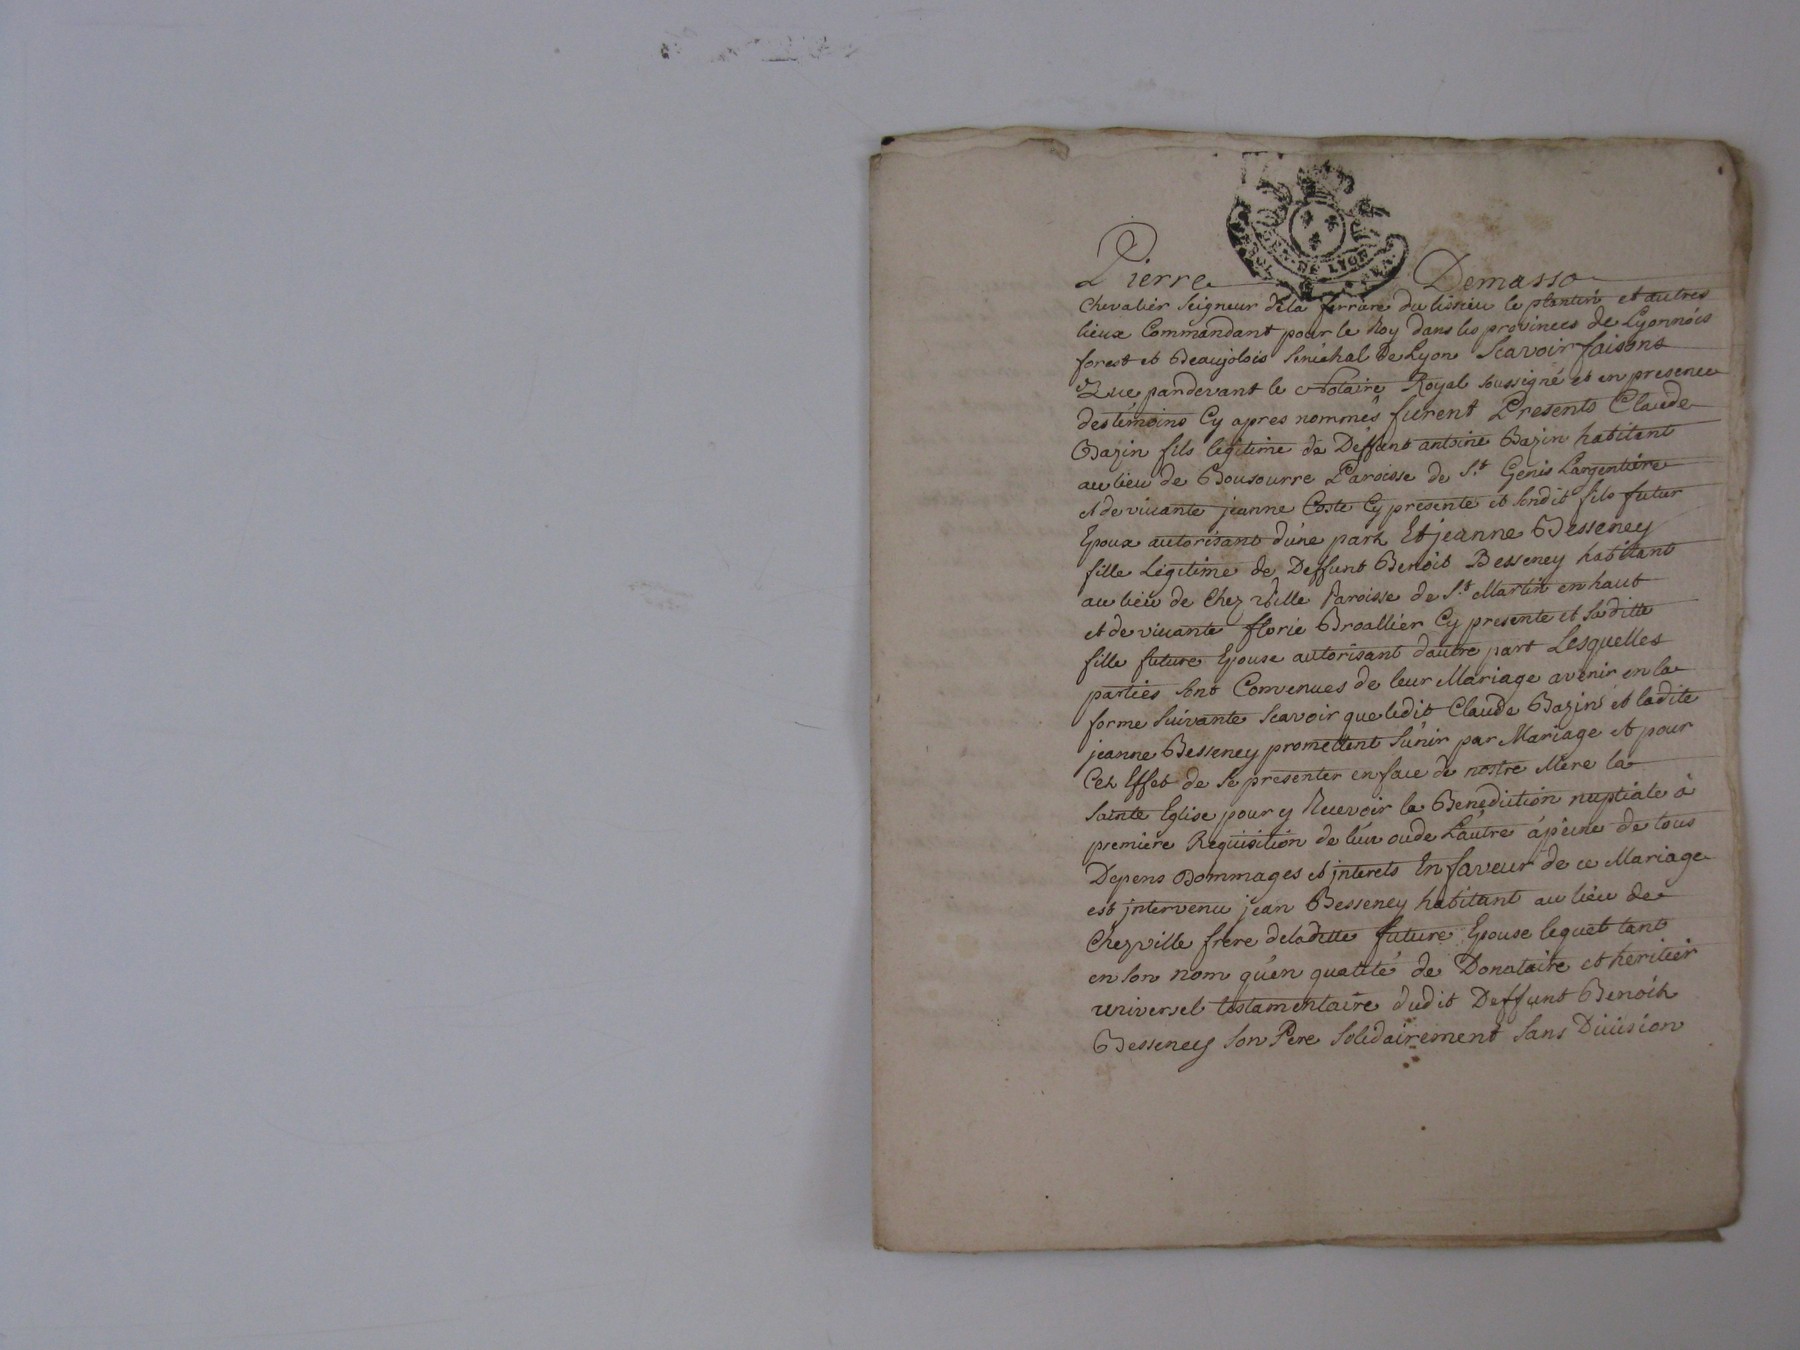 GEN. DE LYON
Pierre Demasso
Chevalier Seigneur de la ferrare du lissieu le plantin et autres
lieux Commandant pour le Roy dans les provinces de Lyonnois
forest et Beaujolois Senéchal De Lyon Scavoir faisons
Que pardevant le Notaire Royal soussigné et en presence
des témoins Cy apres nommés furent Presents Claude
Bazin fils legitime de Deffunt antoine Bazin habitant
au lieu de Bousourre Paroisse de St Genis Largentiére
et de vivante jeanne Coste Cy presente et sondit fils futur
Epoux autorisant d'une part Et jeanne Besseney
fille Légitime de Deffunt Benoit Besseney habitant
au lieu de Chez ville Paroisse de St Martin en haut
et de vivante florie Broallier Cy presente et sa ditte
fille future Epouse autorisant dautre part Lesquelles
parties sont Convenues de leur Mariage avenir en la
forme Suivante Scavoir que ledit Claude Bazin et ladite
jeanne Besseney promettent s'unir par Mariage et pour
Cet Effet de se presenter en face de nostre Mere la
Sainte Eglise pour y Recevoir la Benediction nuptiale à
premiere Requisition de l'un ou de L'autre à peine de tous
Depens Dommages et jnterets En faveur de ce Mariage
est jntervenu jean Besseney habitant au lieu de
Chezville frere de laditte future Epouse lequel tant
en son nom qu'en qualité de Donataire et heritier
universel testamentaire dudit Deffunt Benoit
Besseney son Pere Solidairement Sans Division